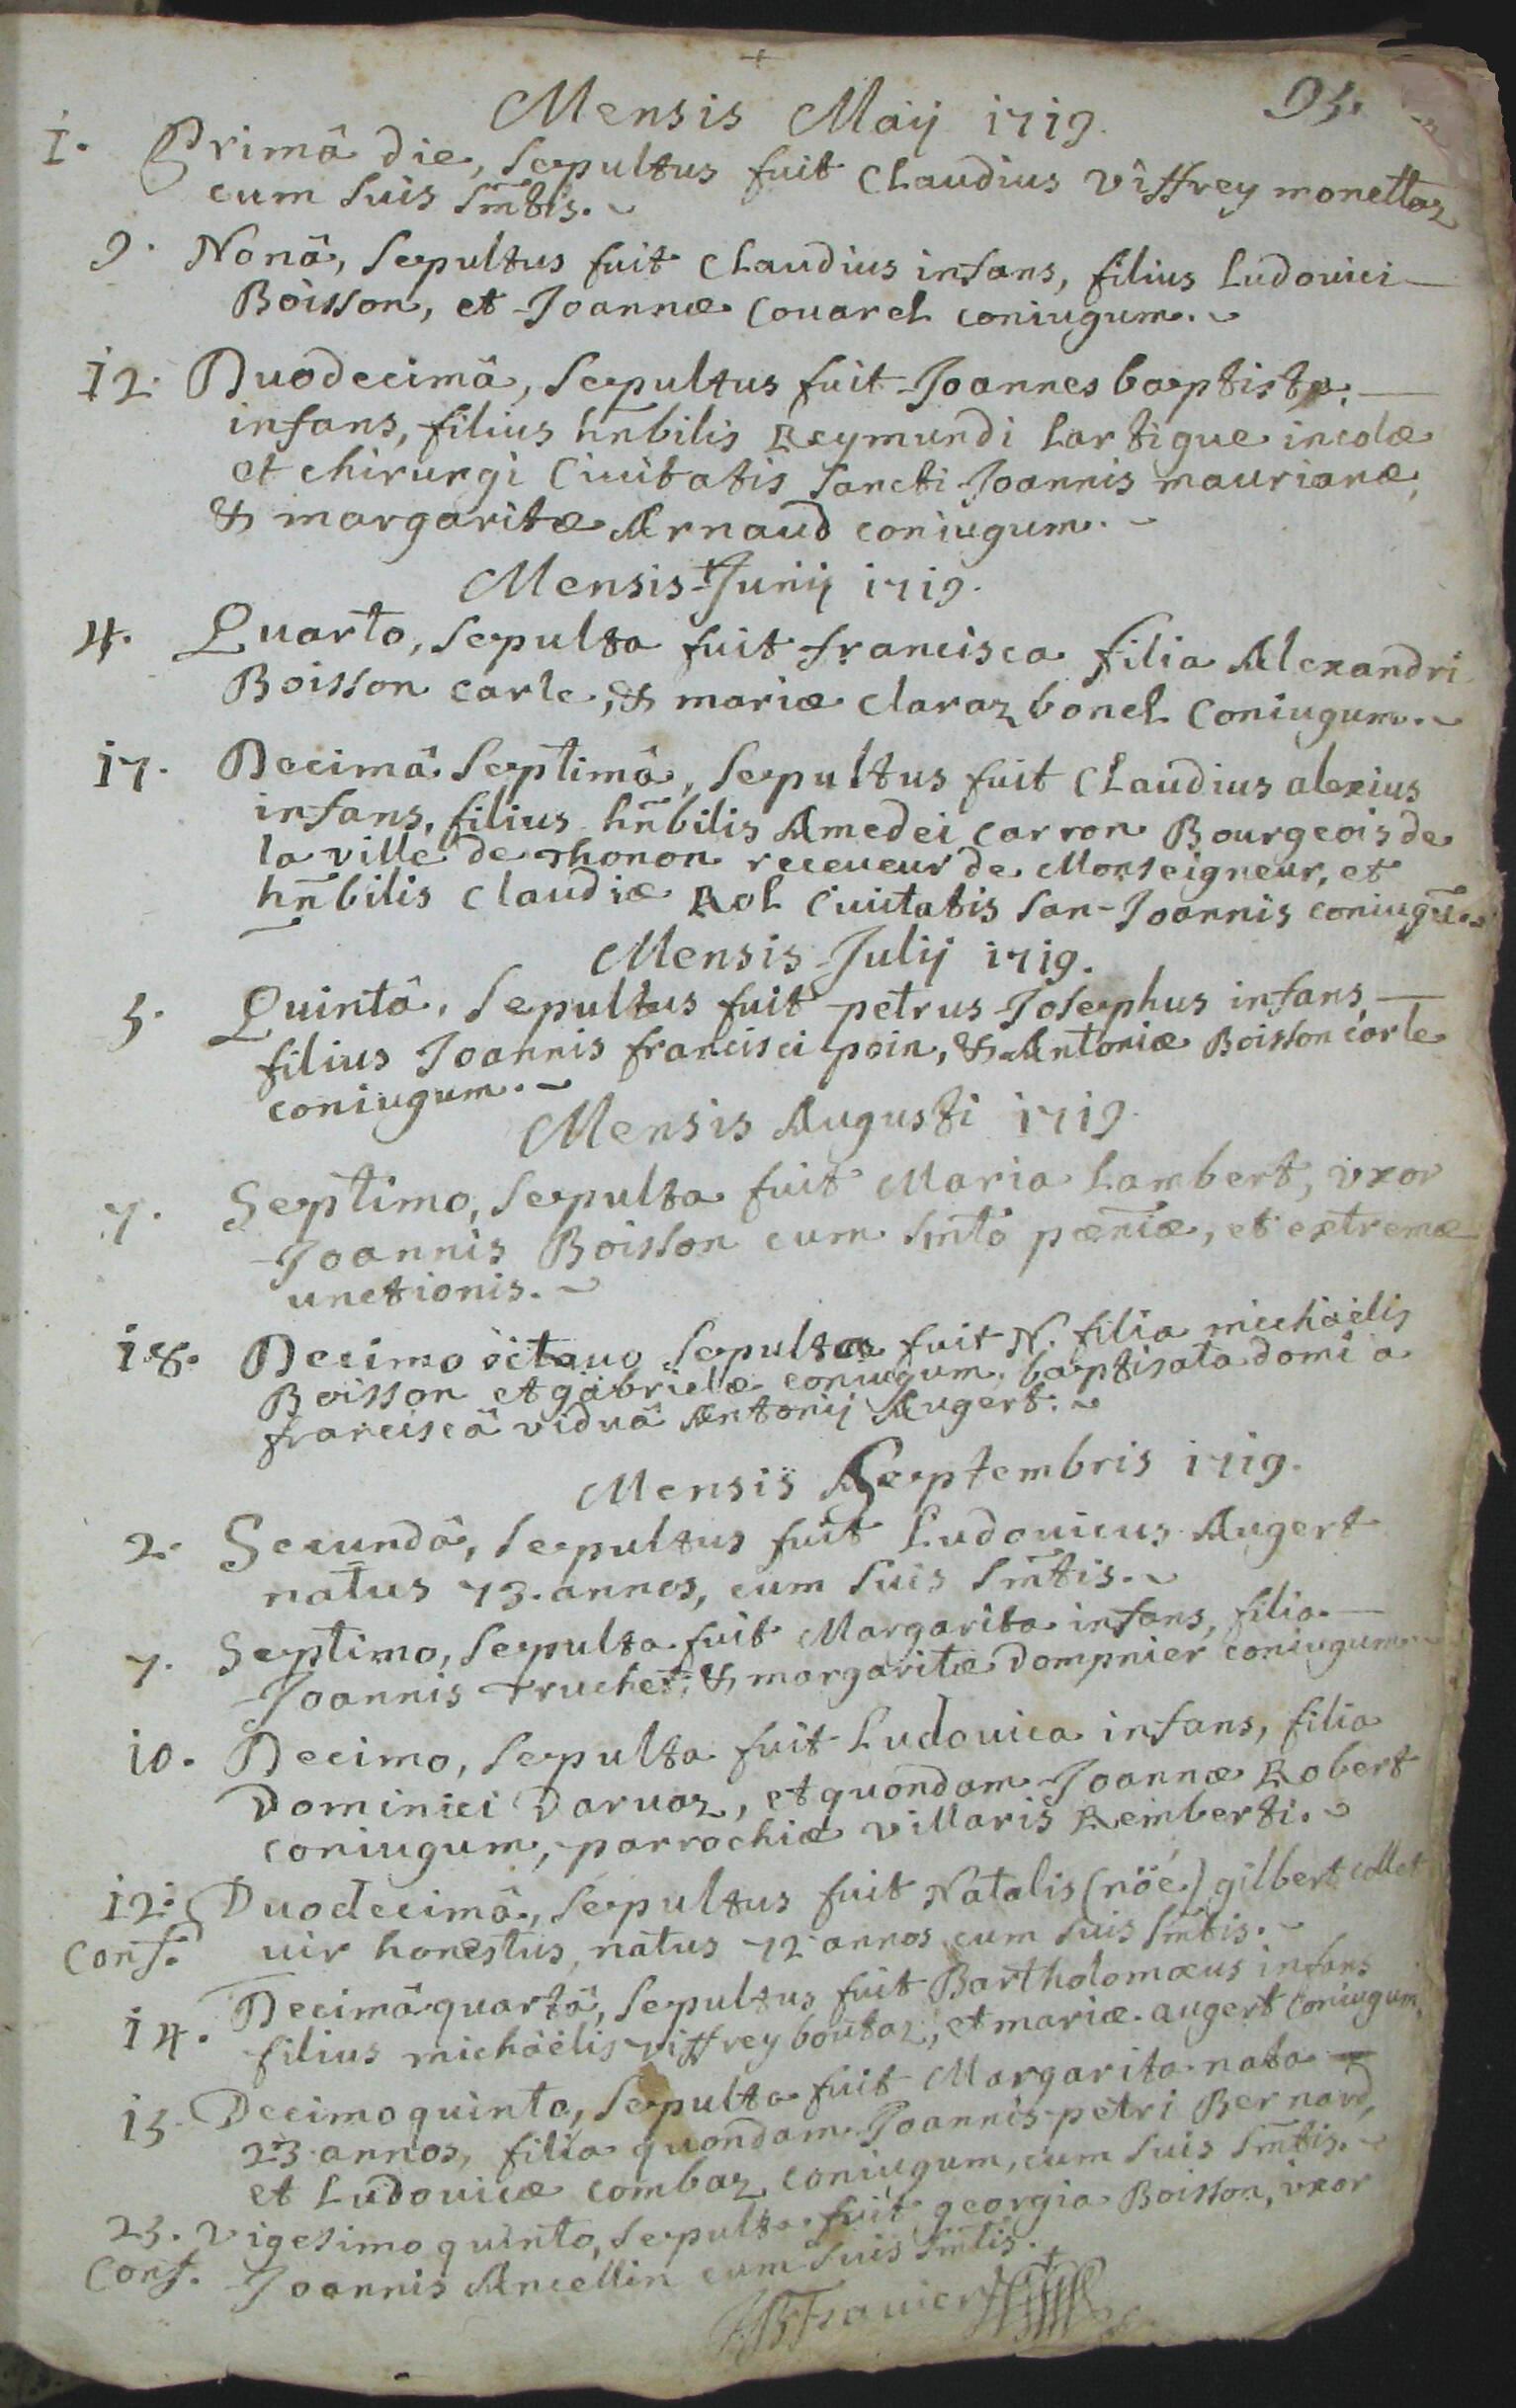 Mensis Maij 1719. 95.
1. Primâ die, sepultus fuit Claudius viffrey monettaz
cum suis sm̃tis.
9. Nonâ, sepultus fuit Claudius infans, filius Ludouici
Boisson, et Joannæ Couarel coniugum.
12. Duodecimâ, sepultus fuit Joannes baptista,
infans, filius hñbilis Reymundi Lartigue incolæ
et chirurgi Ciuitatis sancti Joannis maurianæ,
& margaritæ Arnaud coniugum.
Mensis Junij 1719.
4. Quarto, sepulta fuit francisca filia Alexandri
Boisson carle, & mariæ claraz bonel Coniugum.
17. Decimâ septimâ, sepultus fuit Claudius alexius
infans, filius hñbilis Amedei carron Bourgeois de
la ville de Thonon receueur de Monseigneur, et
hñbilis Claudiæ Rol Ciuitatis san-Joannis coniugũ.
Mensis Julij 1719.
5. Quintâ, sepultus fuit petrus Josephus infans,
filius Joannis francisci poin, & Antoniæ Boisson carle
coniugum.
Mensis Augusti 1719.
7. Septimo, sepulta fuit Maria Lambert, vxor
Joannis Boisson cum smto pœniæ, et extremæ
unctionis.
18. Decimo octauo sepulta fuit N. filia michaëlis
Boisson et gabrielæ coniugum, baptisata domi a
franciscâ viduâ Antonij Augert.
Mensis Septembris 1719.
2. Secundâ, sepultus fuit Ludouicus Augert
natus 73. annos, cum suis sm̃tis.
7. Septimo, sepulta fuit Margarita infans, filia
Joannis Truchet, & margaritæ Dompnier coniugum
10. Decimo, sepulta fuit Ludouica infans, filia
Dominici Daruaz, et quondam Joannæ Robert
coniugum, parrochiæ villaris Remberti.
12. Duodecimâ, sepultus fuit Natalis (nöé) gilbert collet
Conf. uir honestus, natus 72 annos cum suis sm̃tis.
14. Decimâ quartâ, sepultus fuit Bartholomæus infans
filius michaëlis viffrey boutaz, et mariæ augert Coniugum,
15. Decimo quinto, sepulta fuit Margarita nata
23 annos, filia quondam Joannis petri Bernard,
et Ludouicæ combaz coniugum, cum suis sm̃tis.
25. vigesimo quinto, sepulta fuit georgia Boisson, vxor
Conf. Joannis Ancellin cum suis sm̃tis.